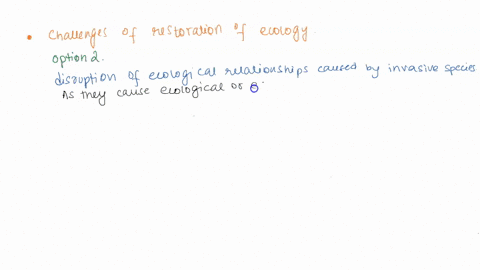 • Challenges of restoration of ecology.
option 2.
disruption of ecological relationships caused by invasive species
As they cause ecological or